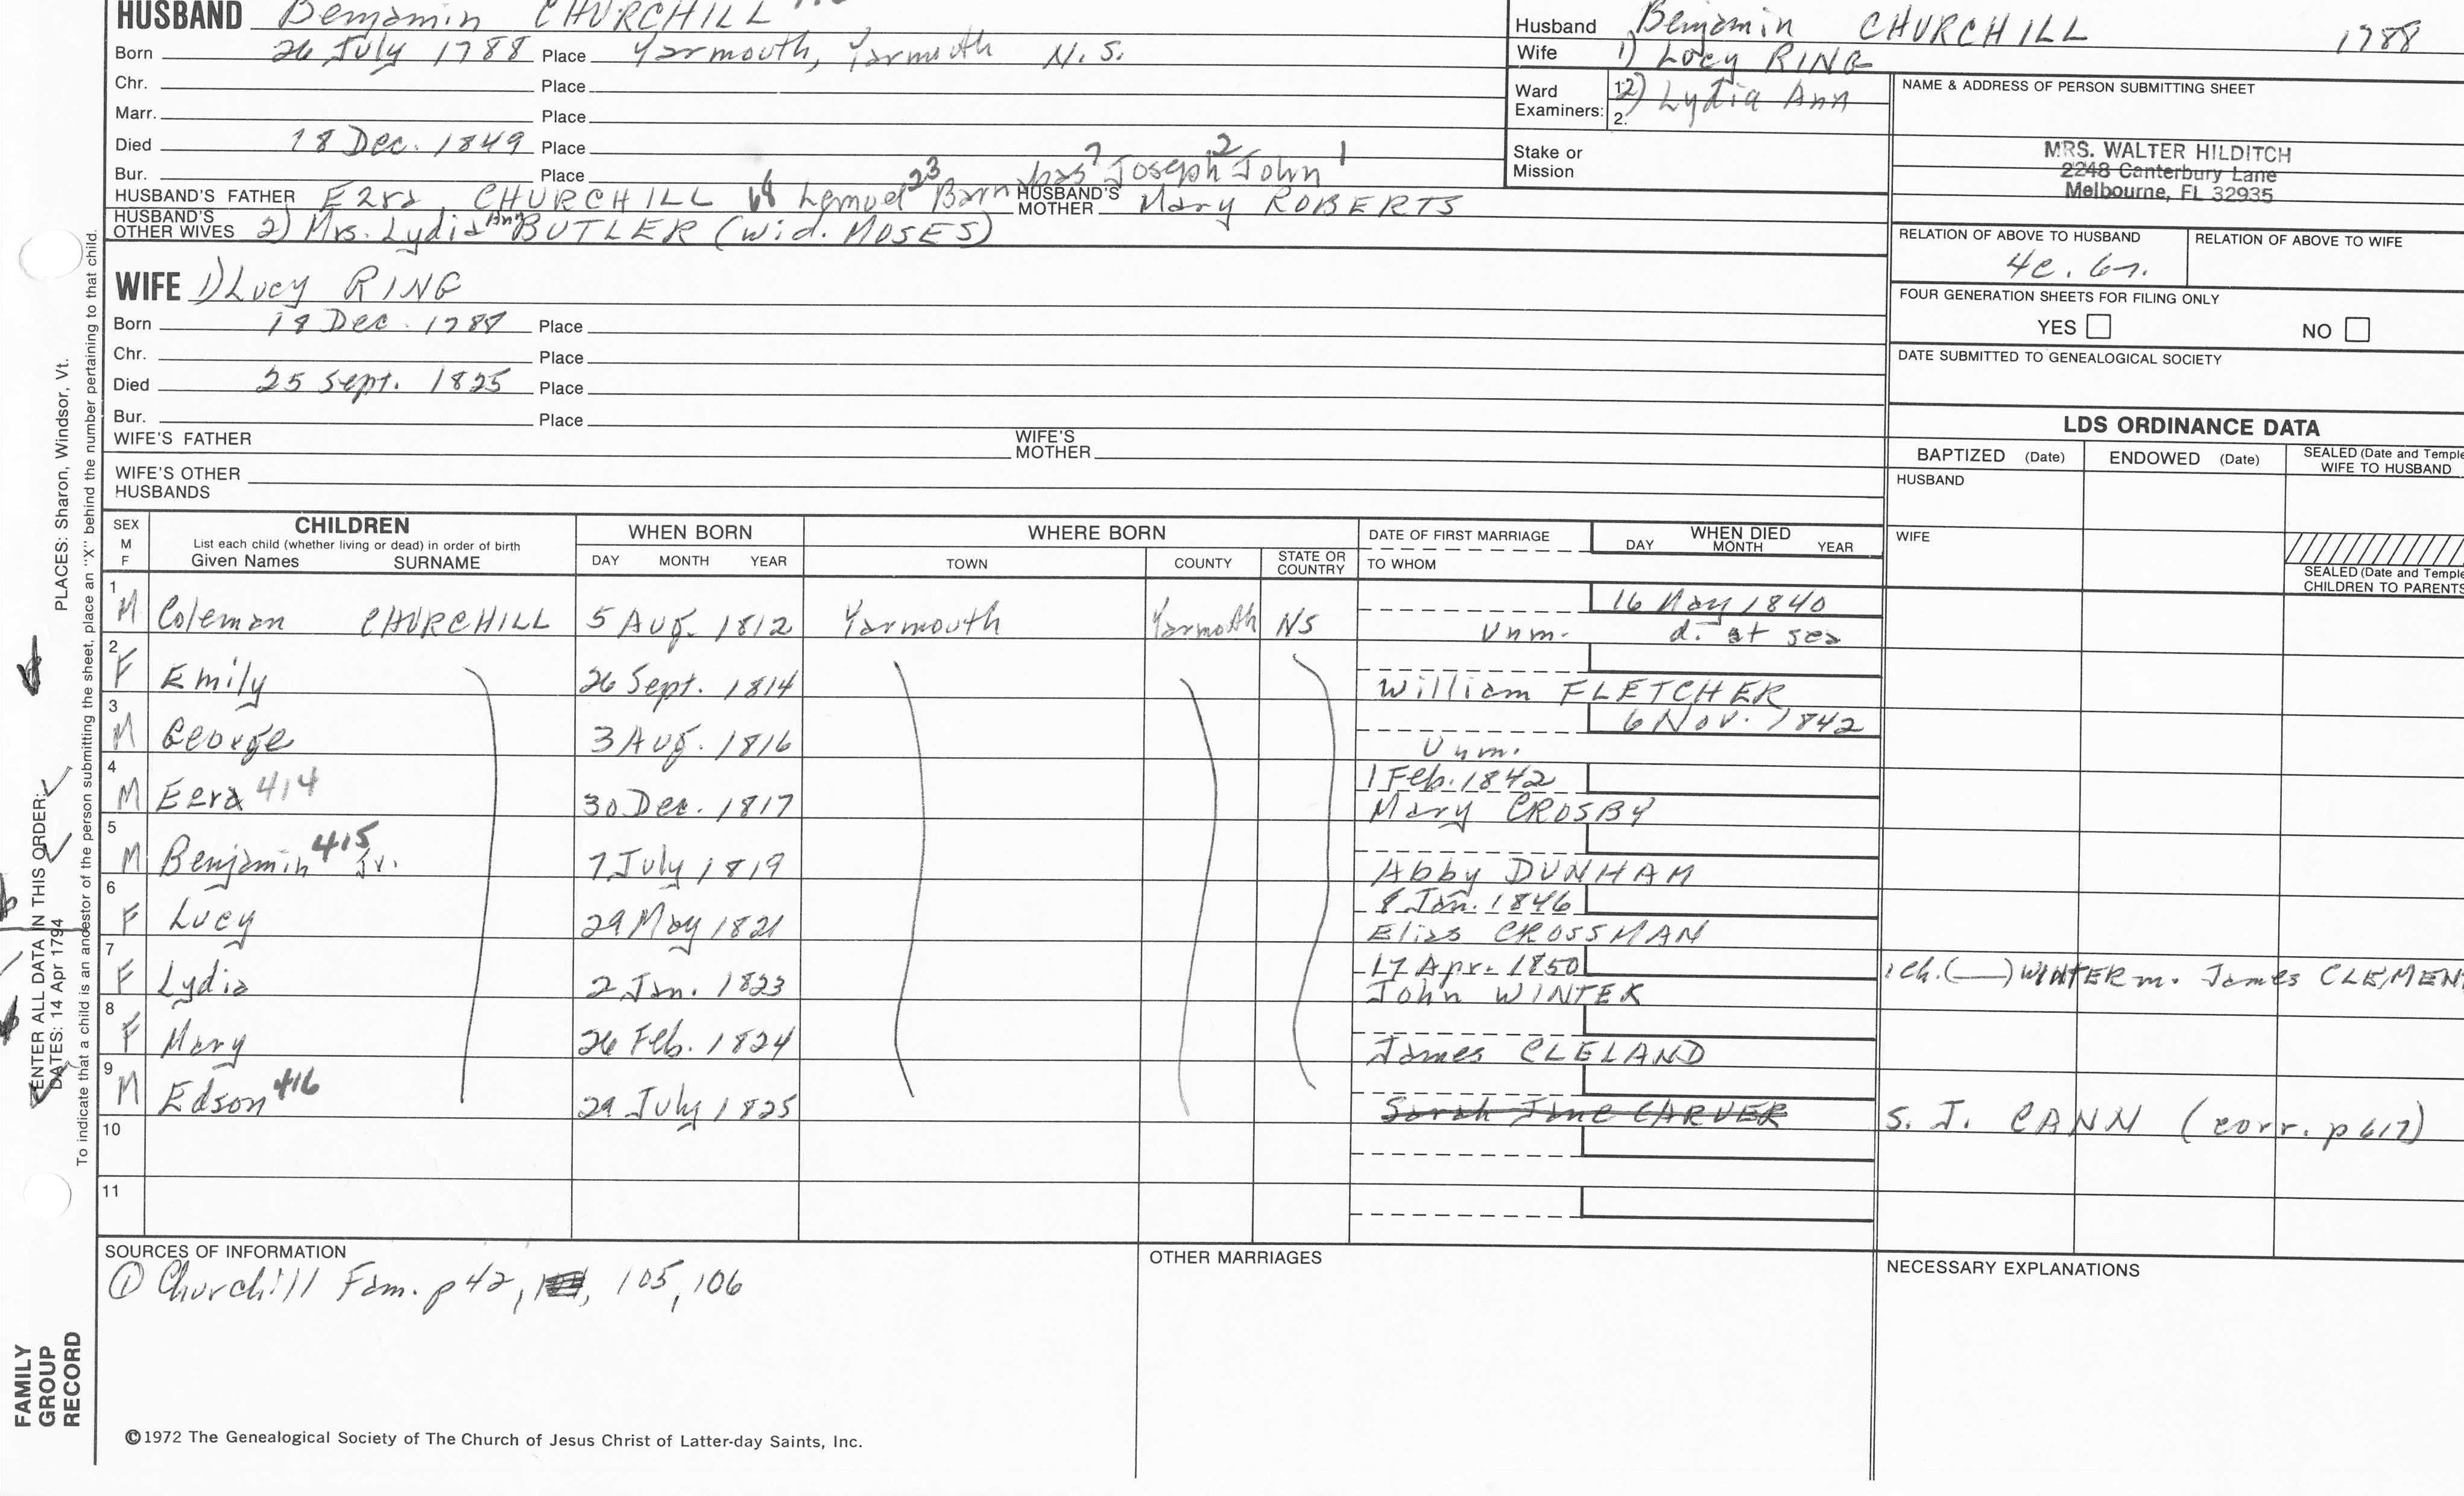 HUSBAND Benjamin CHURCHILL
Born 26 July 1788 Place Yarmouth, Yarmouth N.S.
Chr. Place
Marr. Place
Died 18 Dec. 1849 Place
Bur. Place
HUSBAND'S FATHER Ezra CHURCHILL Lemuel Barnabas Joseph John 1
HUSBAND'S MOTHER Mary ROBERTS
HUSBAND'S OTHER WIVES 2) Mrs. Lydia Ann BUTLER (Wid. MOSES)
WIFE 1) Lucy RING
Born 18 Dec. 1788 Place
Chr. Place
Died 25 Sept. 1825 Place
Bur. Place
WIFE'S FATHER WIFE'S MOTHER
WIFE'S OTHER HUSBANDS
Husband Benjamin CHURCHILL 1788
Wife 1) Lucy RING
Ward Examiners: 1. 2) Lydia Ann
2.
Stake or Mission
NAME & ADDRESS OF PERSON SUBMITTING SHEET
MRS. WALTER HILDITCH
2248 Canterbury Lane
Melbourne, FL 32935
RELATION OF ABOVE TO HUSBAND RELATION OF ABOVE TO WIFE
4c. 6r.
FOUR GENERATION SHEETS FOR FILING ONLY
YES NO
DATE SUBMITTED TO GENEALOGICAL SOCIETY
LDS ORDINANCE DATA
BAPTIZED (Date) ENDOWED (Date) SEALED (Date and Temple WIFE TO HUSBAND
HUSBAND
WIFE
SEALED (Date and Temple CHILDREN TO PARENTS
SEX M F CHILDREN WHEN BORN WHERE BORN DATE OF FIRST MARRIAGE WHEN DIED
List each child (whether living or dead) in order of birth
Given Names SURNAME DAY MONTH YEAR TOWN COUNTY STATE OR COUNTRY TO WHOM DAY MONTH YEAR
1 M Coleman CHURCHILL 5 Aug. 1812 Yarmouth Yarmoth NS Unm. 16 May 1840 d. at sea
2 F Emily 26 Sept. 1814 William FLETCHER
3 M George 3 Aug. 1816 Unm. 6 Nov. 1842
4 M Ezra 414 30 Dec. 1817 1 Feb. 1842 Mary CROSBY
5 M Benjamin 415 Jr. 7 July 1819 Abby DUNHAM
6 F Lucy 29 May 1821 8 Jan. 1846 Elias CROSSMAN
7 F Lydia 2 Jan. 1823 17 Apr. 1850 John WINTER 1 ch. (—) WINTER m. James CLEMEN
8 F Mary 26 Feb. 1824 James CLELAND
9 M Edson 416 29 July 1825 Sarah Jane CARVER S. J. CANN (corr. p 617)
10
11
SOURCES OF INFORMATION
① Churchill Fam. p 42, 105, 106
OTHER MARRIAGES
NECESSARY EXPLANATIONS
©1972 The Genealogical Society of The Church of Jesus Christ of Latter-day Saints, Inc.
FAMILY GROUP RECORD
ENTER ALL DATA IN THIS ORDER: PLACES: Sharon, Windsor, Vt.
DATES: 14 Apr 1794
To indicate that a child is an ancestor of the person submitting the sheet, place an "X" behind the number pertaining to that child.